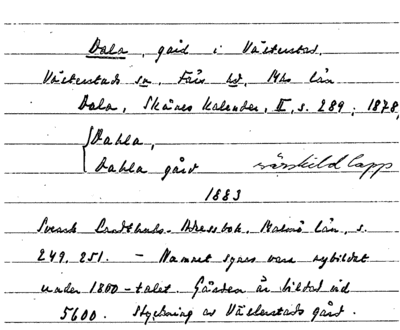 Dala, gård i Västerstad,
Västerstads sn, Färs hd, Mhs län
Dala, Skånes Kalender, II, s. 289; 1878,
Dahla,
Dahla gård särskild lapp
1883
Svensk Landtbruks-Adressbok, Malmö län, s.
249, 251. – Namnet synes vara nybildat
under 1800-talet. Gården är bildad vid
5600. Styckning av Västerstads gård.